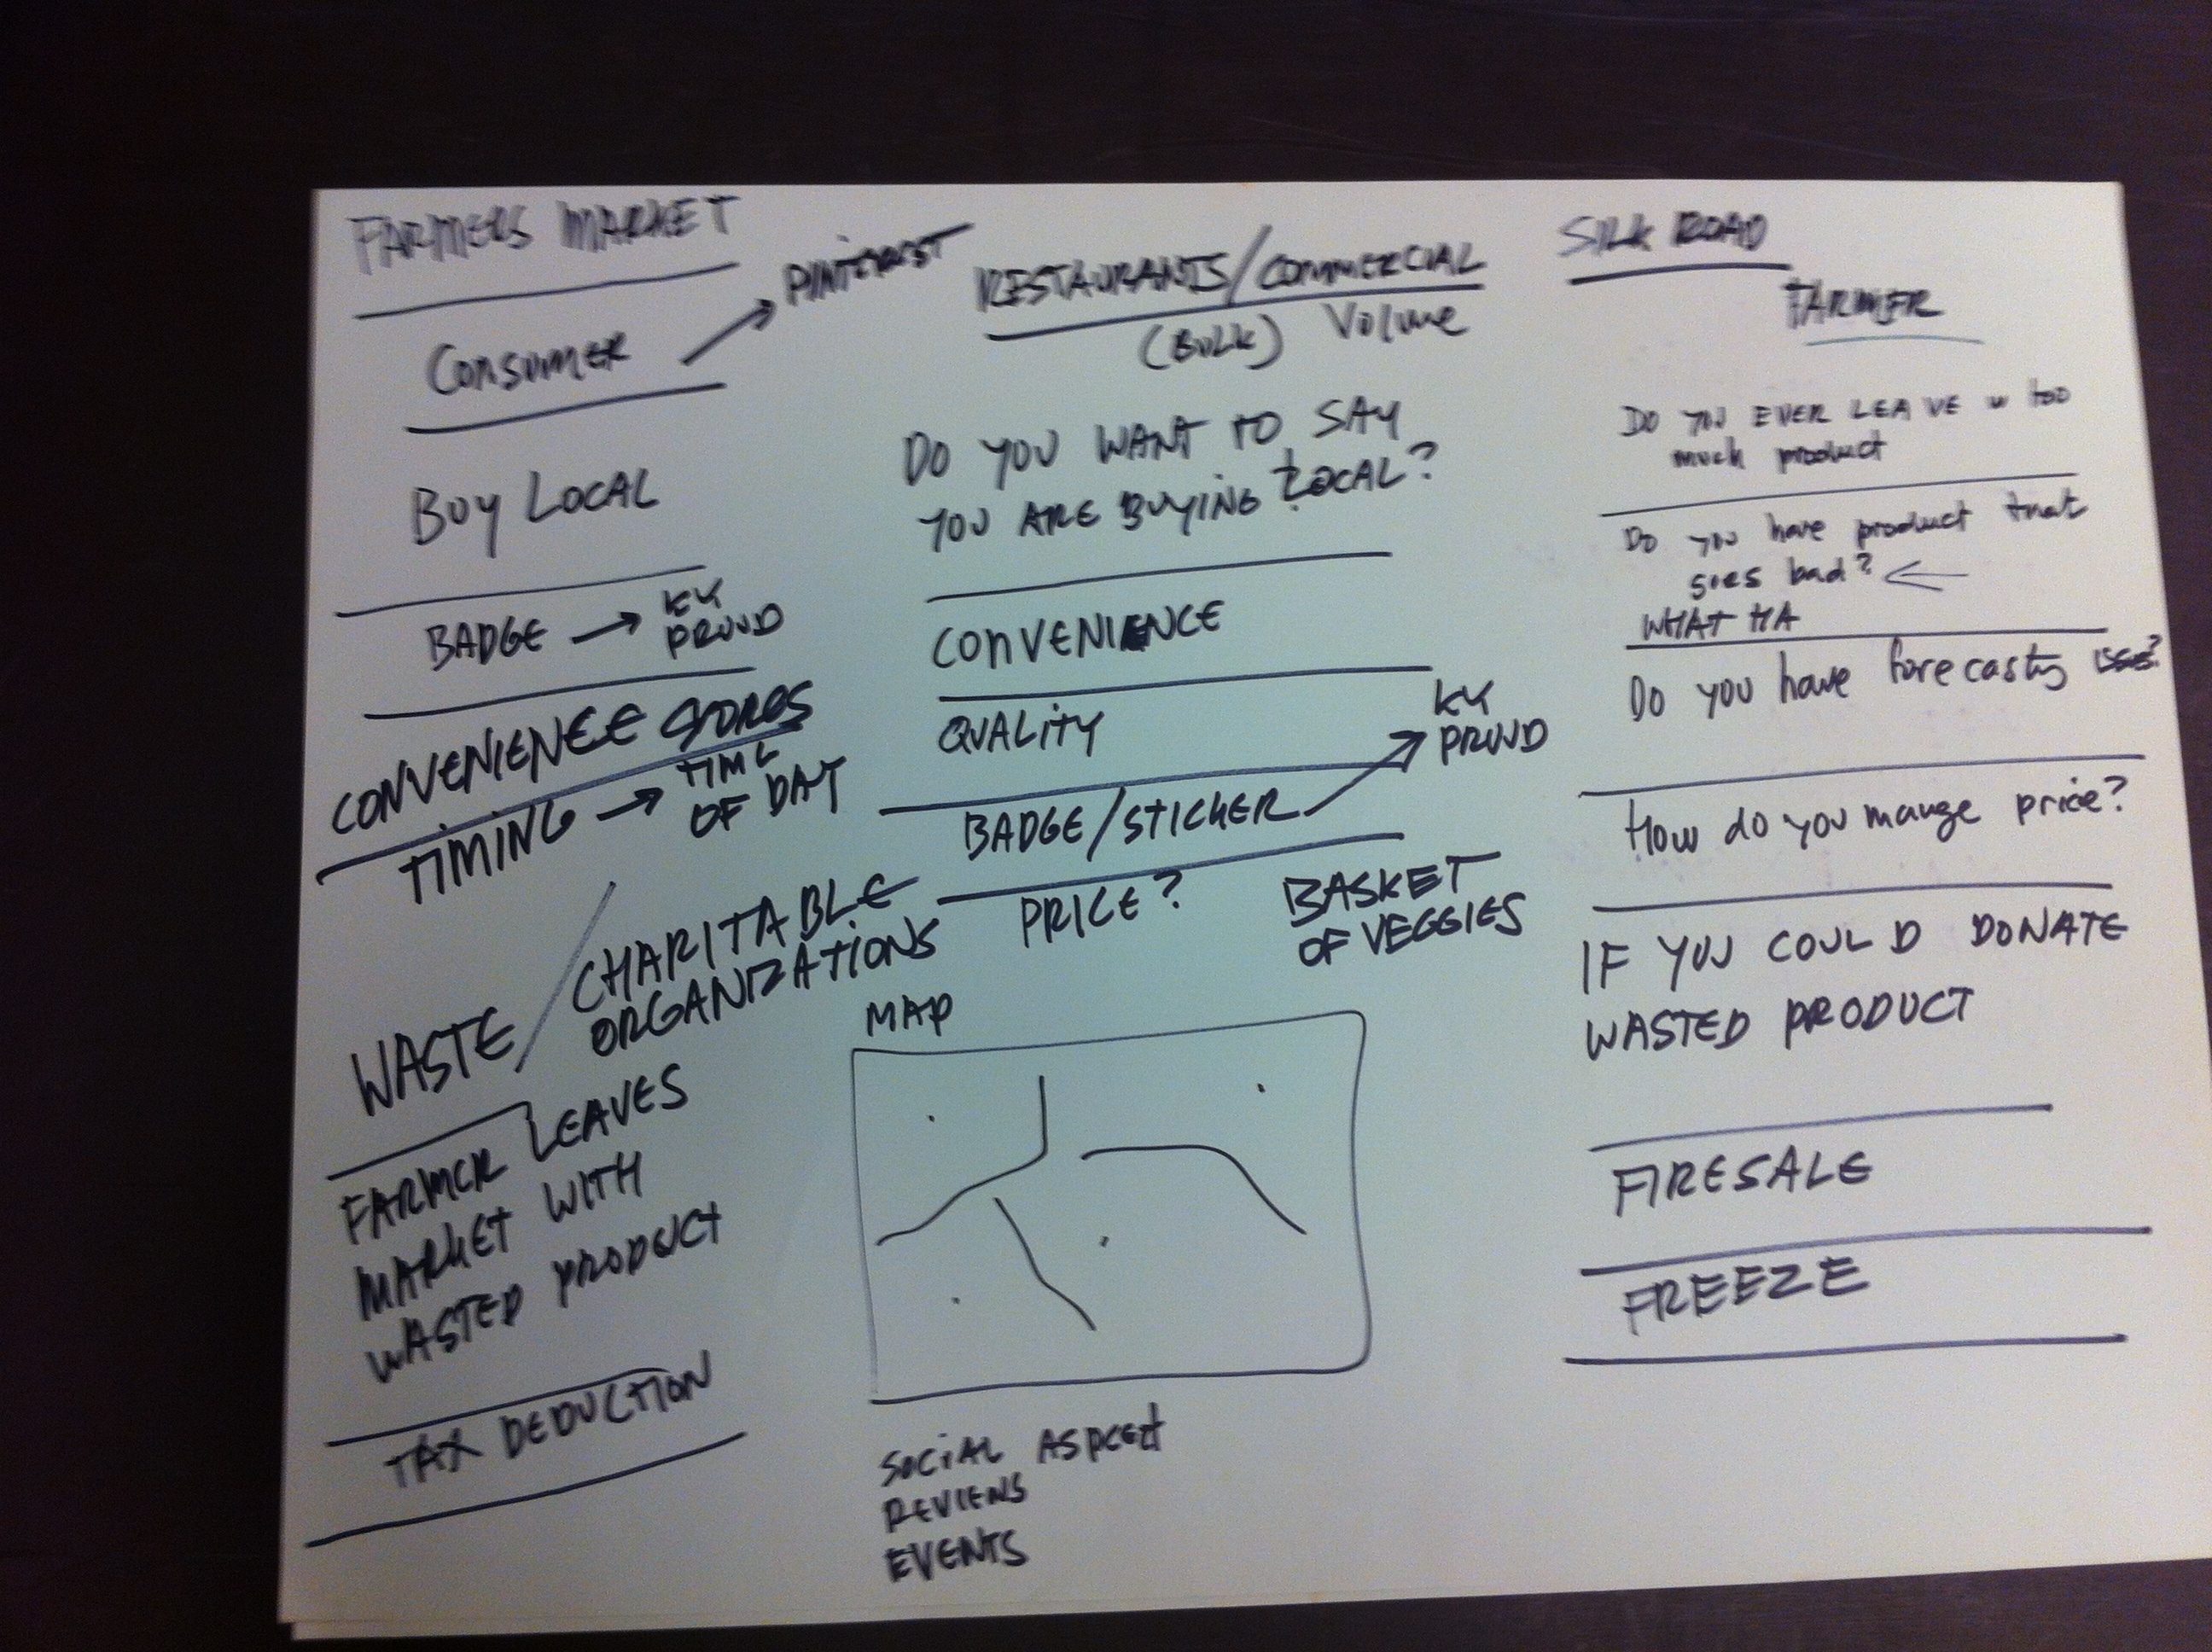 FARMERS MARKET
CONSUMER → PINTEREST
BUY LOCAL
BADGE → KY
PROUD
CONVENIENCE STORES
TIMING → TIME
OF DAY
WASTE / CHARITABLE
ORGANIZATIONS
FARMER LEAVES
MARKET WITH
WASTED PRODUCT
TAX DEDUCTION
RESTAURANTS/COMMERCIAL
(BULK) Volume
DO YOU WANT TO SAY
YOU ARE BUYING LOCAL?
CONVENIENCE
QUALITY
BADGE/STICKER → KY
PROUD
PRICE?
BASKET
OF VEGGIES
MAP
SOCIAL ASPECT
REVIEWS
EVENTS
SILK ROAD
FARMER
DO YOU EVER LEAVE w too
much product
Do you have product that
goes bad? ←
WHAT HA
Do you have forecasty
How do you mange price?
IF YOU COULD DONATE
WASTED PRODUCT
FIRESALE
FREEZE